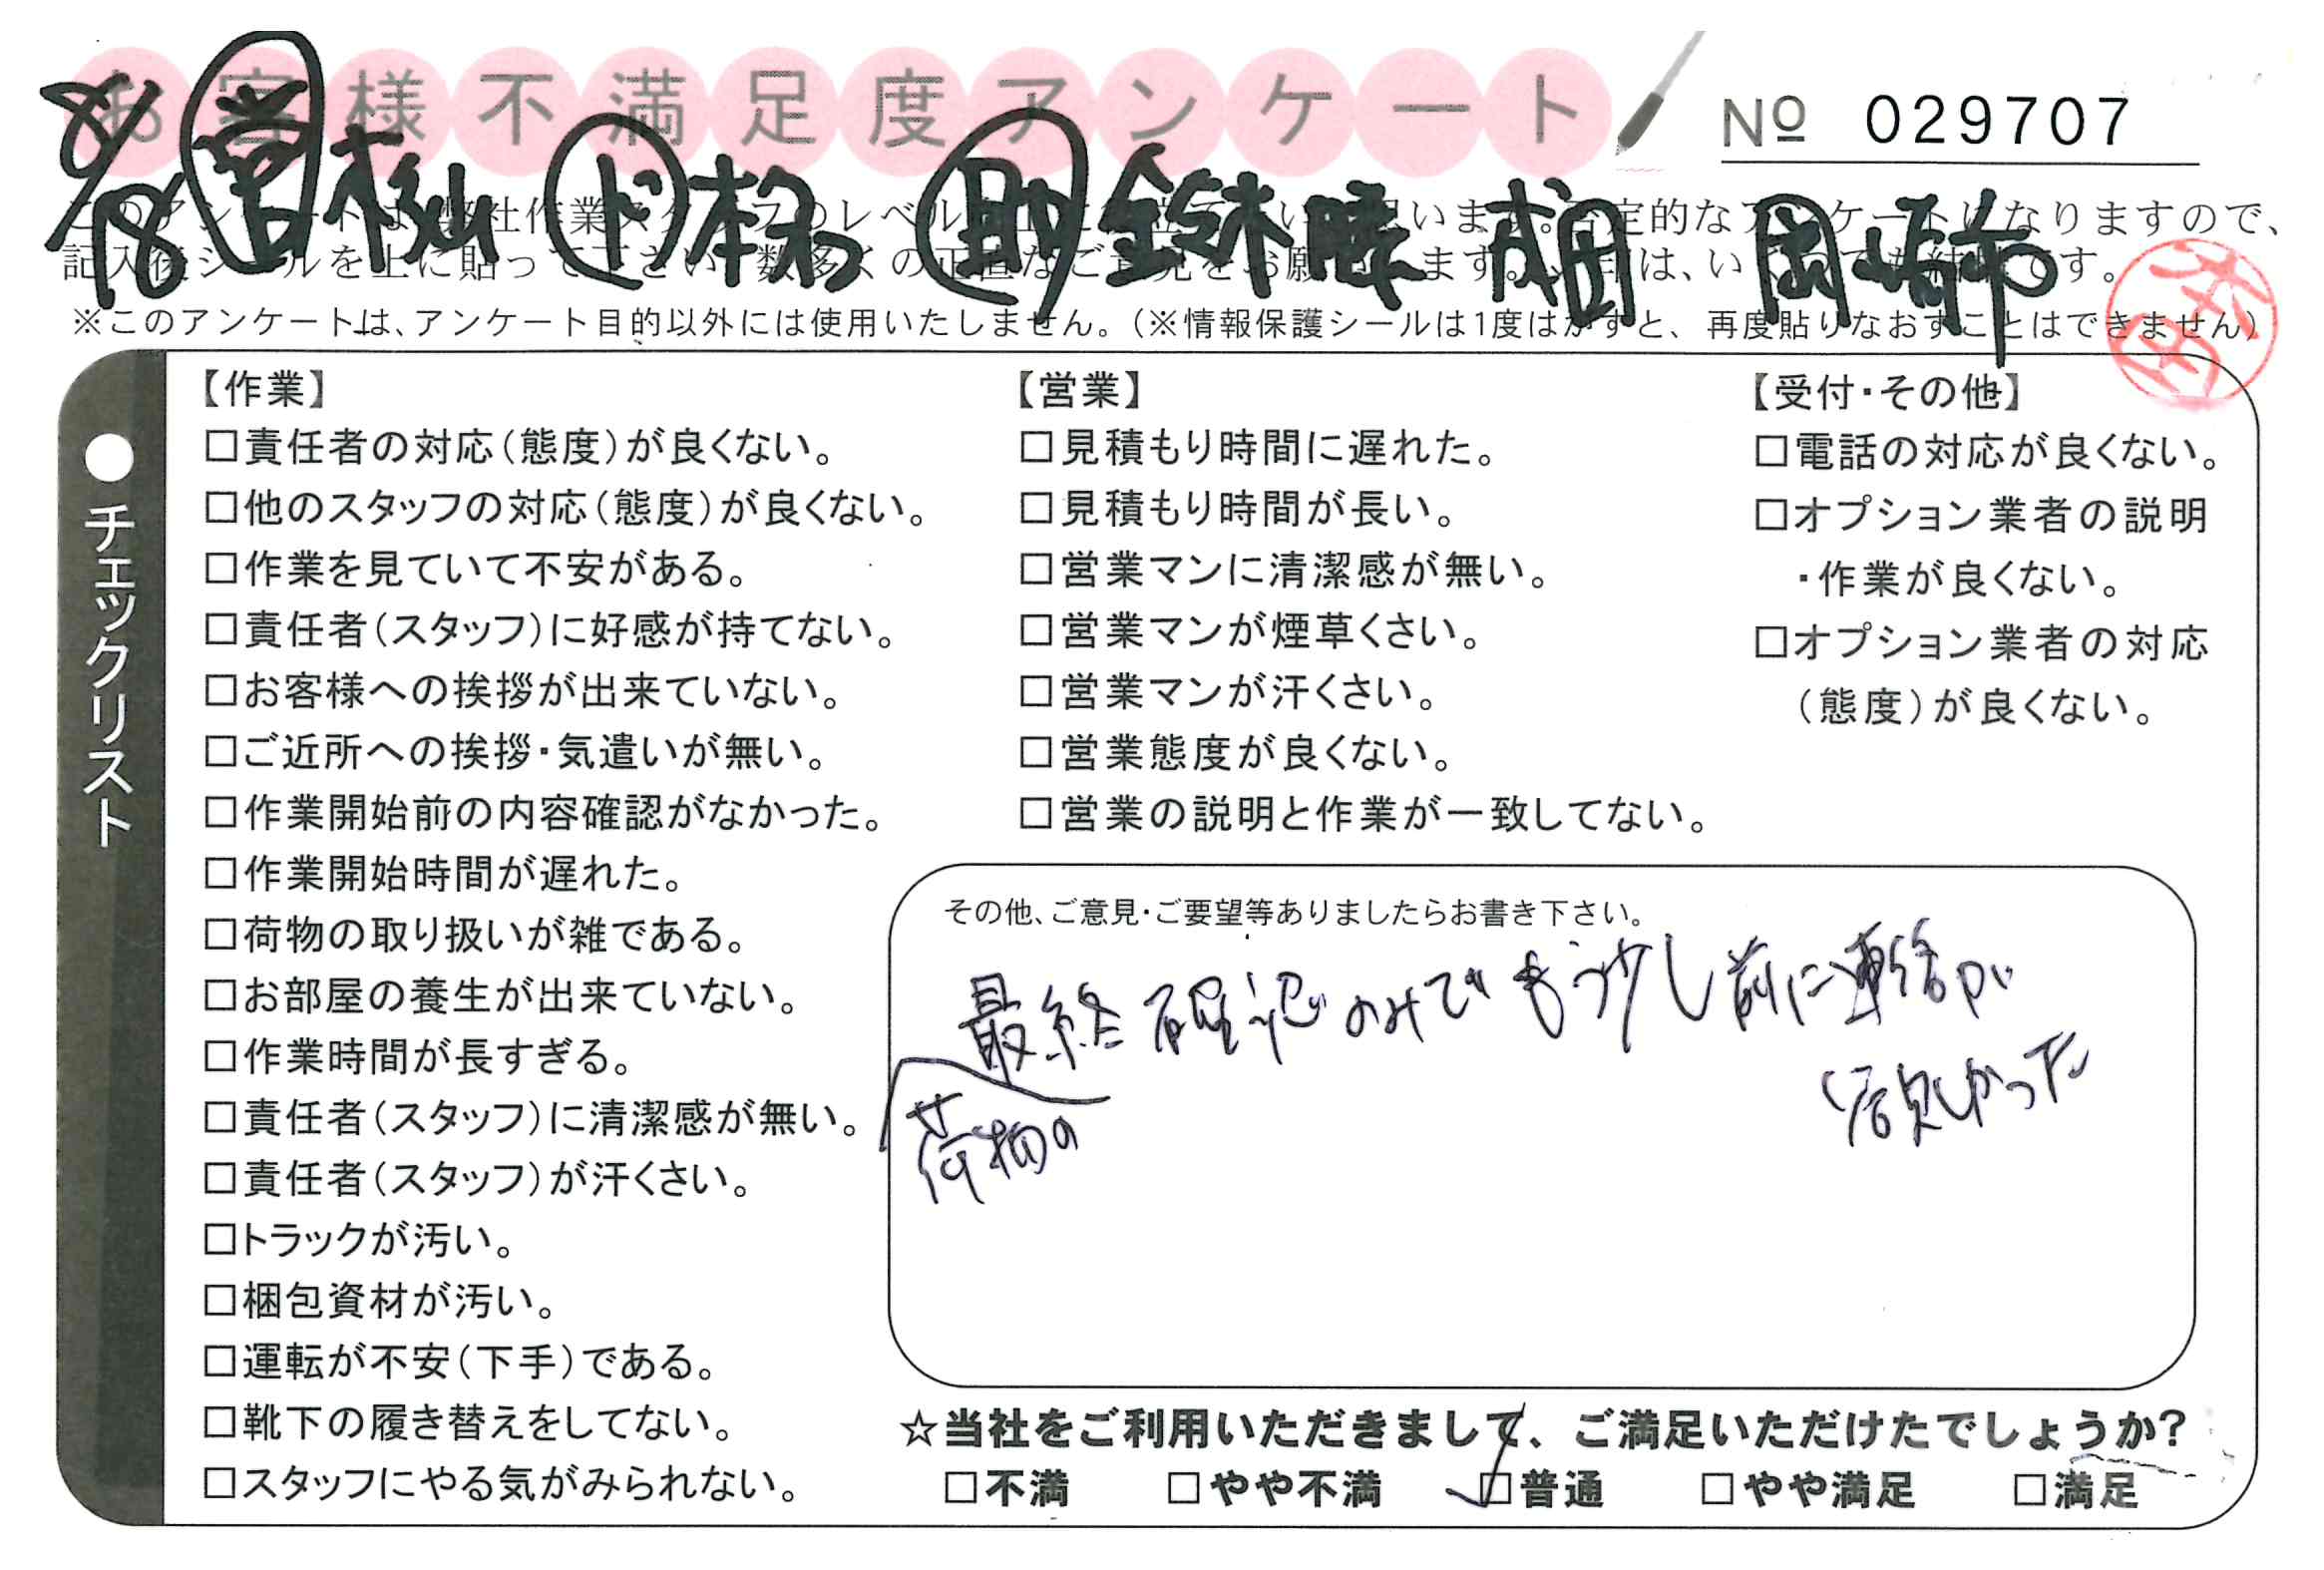 お客様不満足度アンケート
No 029707
8/18 営 杉山 ド 本杉 助 鈴木 成田 岡崎市
このアンケートは、弊社作業スタッフのレベル
います。否定的なアンケートになりますので、
記入後シールを上に貼って下さい。数多くの正直なご意見をお願
ます。
※このアンケートは、アンケート目的以外には使用いたしません。(※情報保護シールは1度はがすと、再度貼りなおすことはできません)
●チェックリスト
【作業】
□責任者の対応(態度)が良くない。
□他のスタッフの対応(態度)が良くない。
□作業を見ていて不安がある。
□責任者(スタッフ)に好感が持てない。
□お客様への挨拶が出来ていない。
□ご近所への挨拶・気遣いが無い。
□作業開始前の内容確認がなかった。
□作業開始時間が遅れた。
□荷物の取り扱いが雑である。
□お部屋の養生が出来ていない。
□作業時間が長すぎる。
□責任者(スタッフ)に清潔感が無い。
□責任者(スタッフ)が汗くさい。
□トラックが汚い。
□梱包資材が汚い。
□運転が不安(下手)である。
□靴下の履き替えをしてない。
□スタッフにやる気がみられない。
【営業】
□見積もり時間に遅れた。
□見積もり時間が長い。
□営業マンに清潔感が無い。
□営業マンが煙草くさい。
□営業マンが汗くさい。
□営業態度が良くない。
□営業の説明と作業が一致してない。
【受付・その他】
□電話の対応が良くない。
□オプション業者の説明
・作業が良くない。
□オプション業者の対応
(態度)が良くない。
その他、ご意見・ご要望等ありましたらお書き下さい。
最終確認のみでもう少し前に連絡が
欲しかった
荷物の
☆当社をご利用いただきまして、ご満足いただけたでしょうか?
□不満 □やや不満 ☑普通 □やや満足 □満足